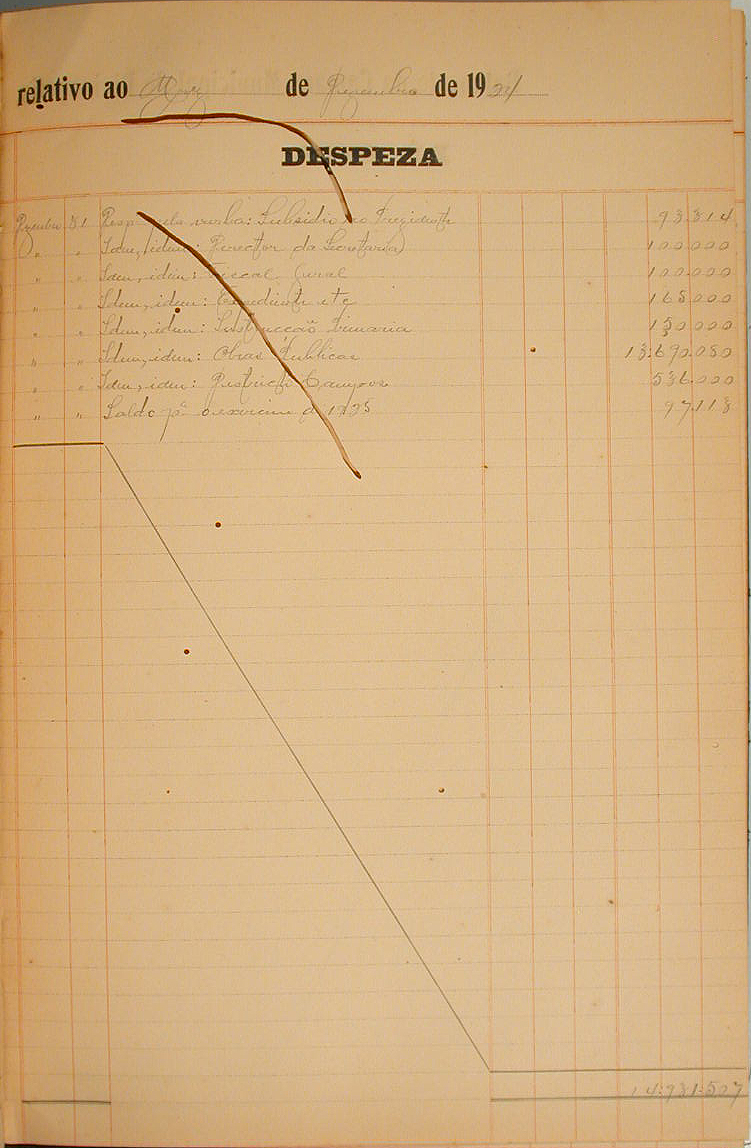 relativo ao Mez de Dezembro de 1924
DESPEZA
Dezembro 31 Desp. da verba: Subsidio ao Prezidente 93.314
" " Idem, idem: Director da Secretaria 100.000
" " Idem, idem: Fiscal Geral 100.000
" " Idem, idem: Expediente etc 165.000
" " Idem, idem: Instrucção Primaria 150.000
" " Idem, idem: Obras Publicas 13:690.080
" " Idem, idem: Campos 536.000
" " Saldo pª o exercicio de 1925 97.113
14:931.507